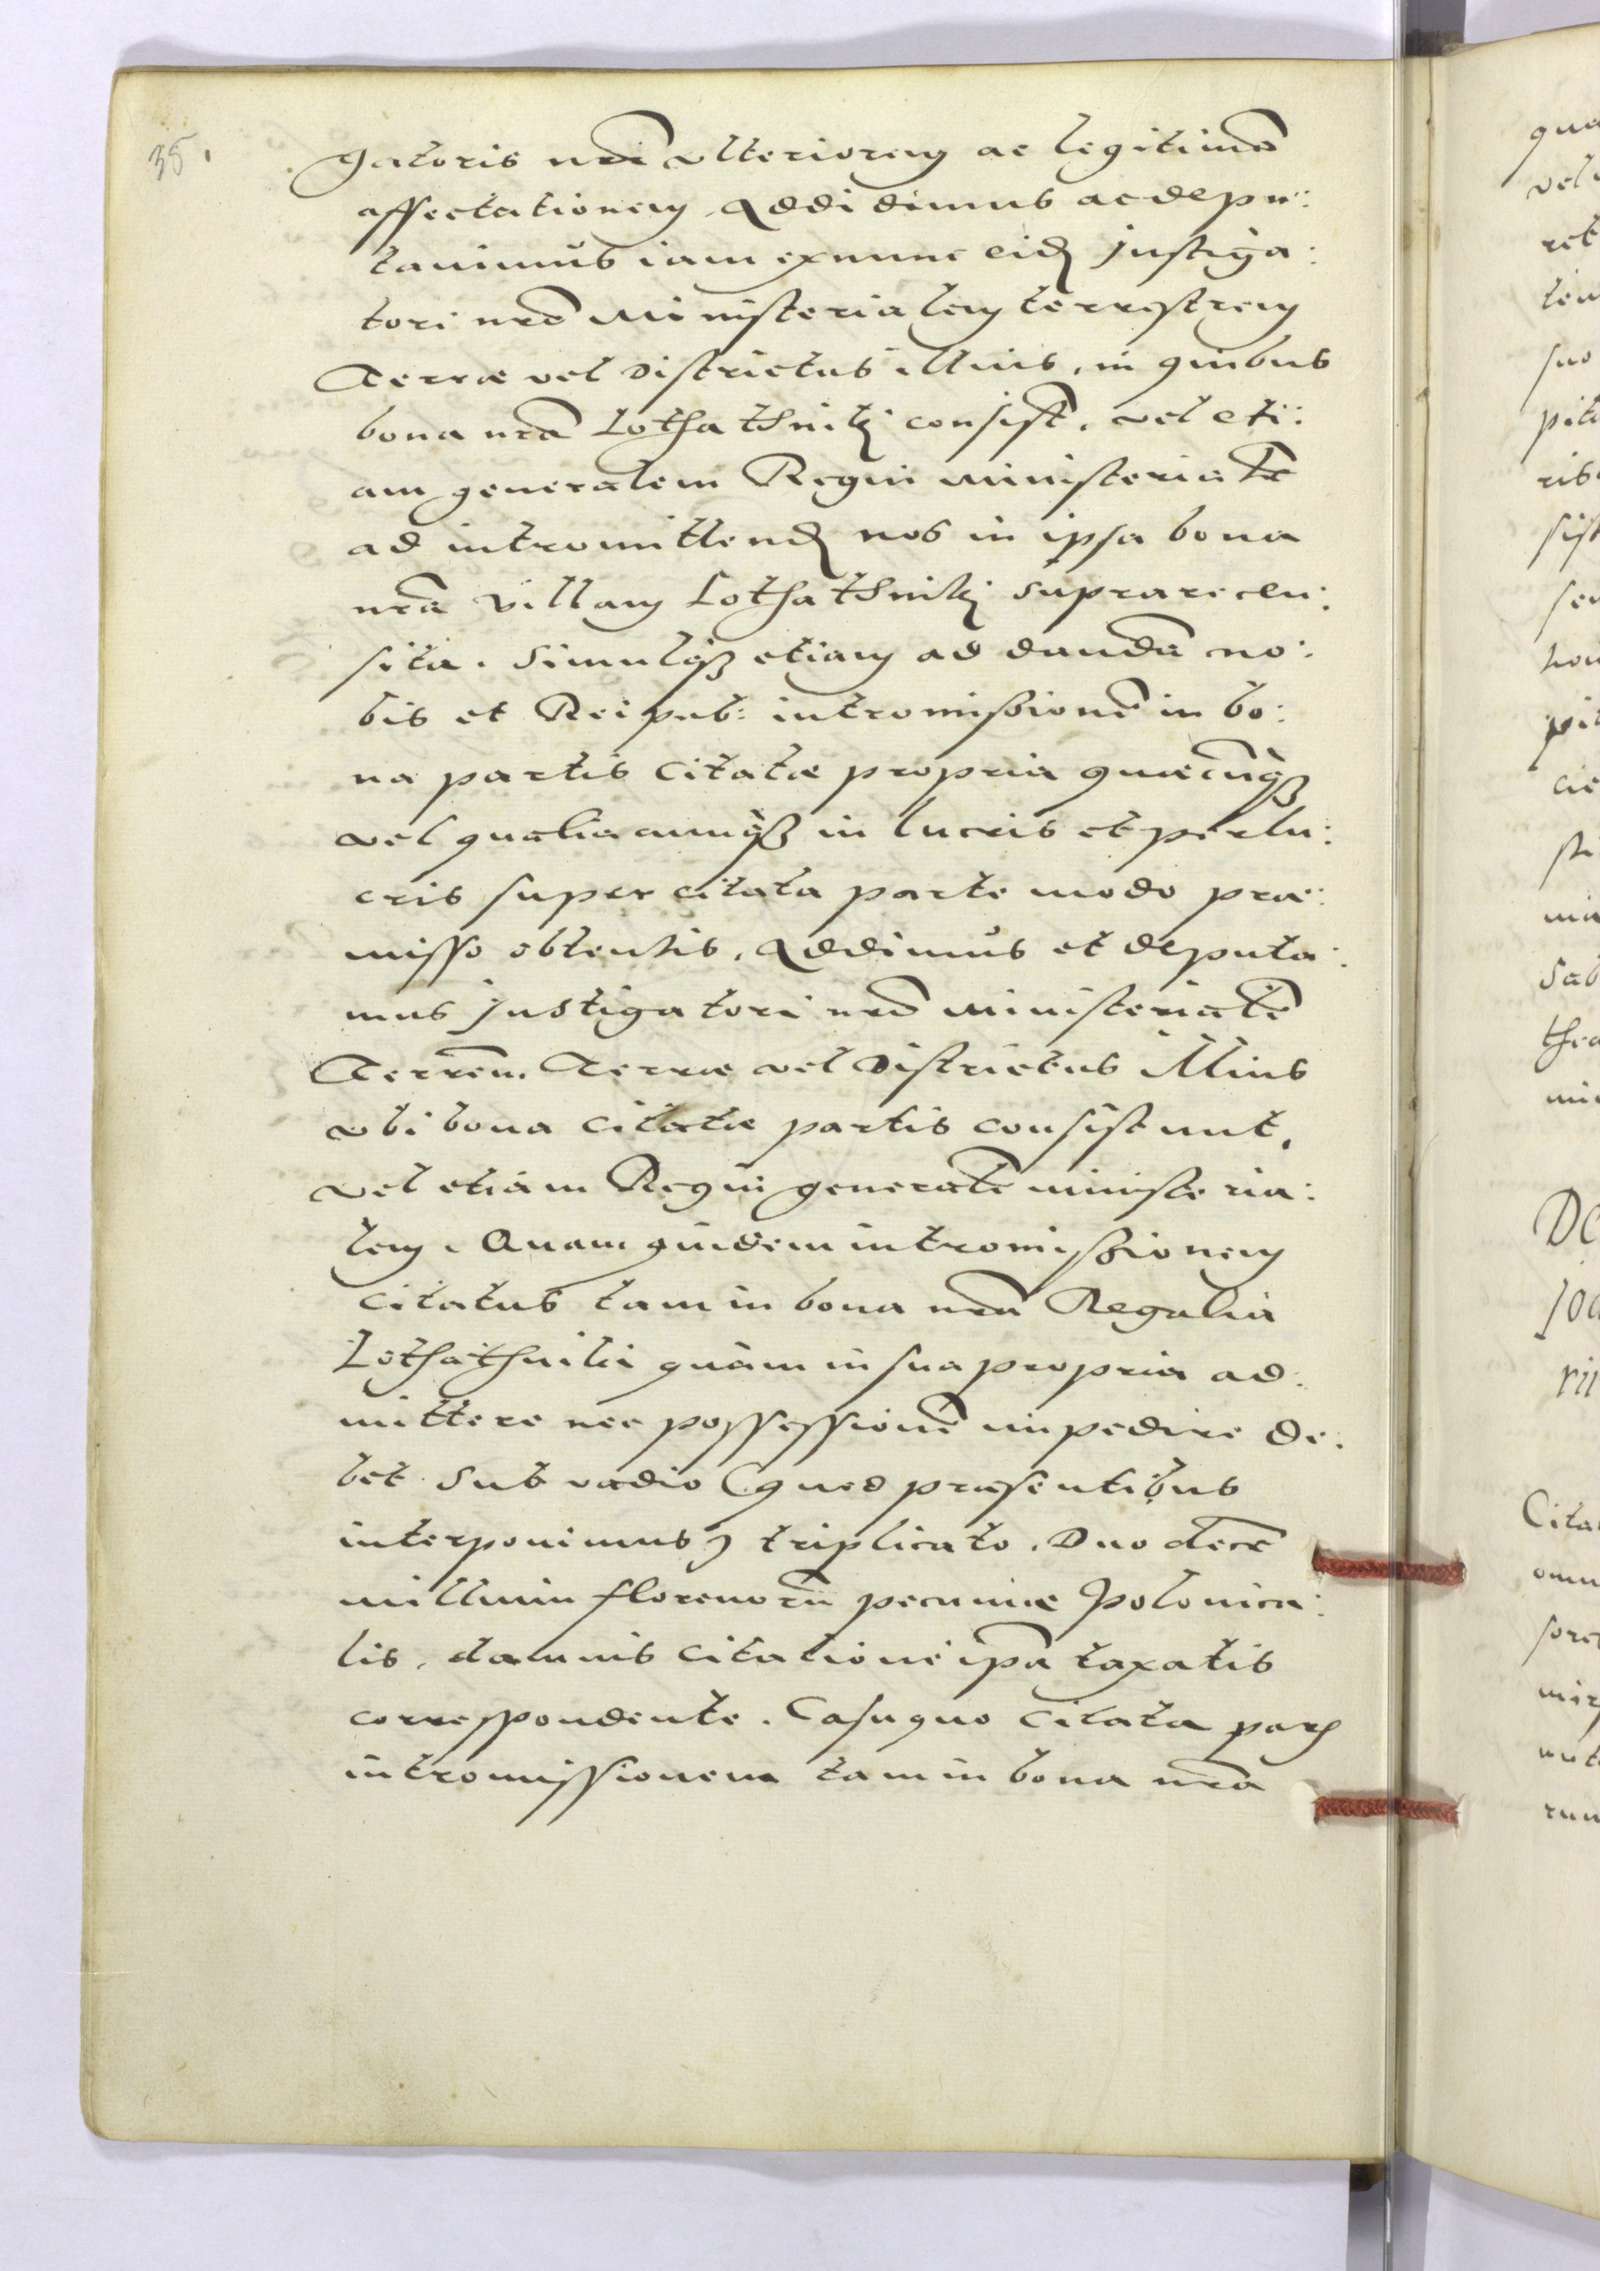 35.
gatoris nrĩ vlteriorem ac legitimã
affectationem Addidimus ac depu:
tauimus iam exnunc eid Instiga:
tori nrõ Ministerialem terrestrem
Terræ vel Districtus illius, in quibus
bona nrã Lothathniki consist̃, vel eti:
am generalem Regni ministerialẽ
ad intromittend nos in ipsa bona
nrã villam Lothathniki suprarecen:
sita. Simulqꝫ etiam ad dandã no:
bis et Reipub: intromissionẽ in bo:
na partis citatæ propria quæcũqꝫ
vel qualiacunqꝫ in lucris et perlu:
cris super citata parte modo præ:
misso obtentis, Addimus et deputa:
mus Instigatori nrõ ministerialẽ
Terrẽm Terræ vel Districtus illius
vbi bona citatæ partis consistunt,
vel etiam Regni generalẽ ministeria:
lem. Quam quidem intromissionem
citatus tam in bona nrã Regalia
Lothathniki quàm in sua propria ad:
mittere nec possessionẽ impedire de:
bet sub vadio (quod præsentibus
interponimus) triplicato. Duodecẽ
millium florenorũ pecuniæ Polonica:
lis, damnis citatione ipã taxatis
correspondente. Casu quo citata pars
intromissionem tam in bona nrã
qua
vel
ret
suo
pit
sist
cie
sti
Sab
thea
DE
Joa
rii
Cita
omn
rum